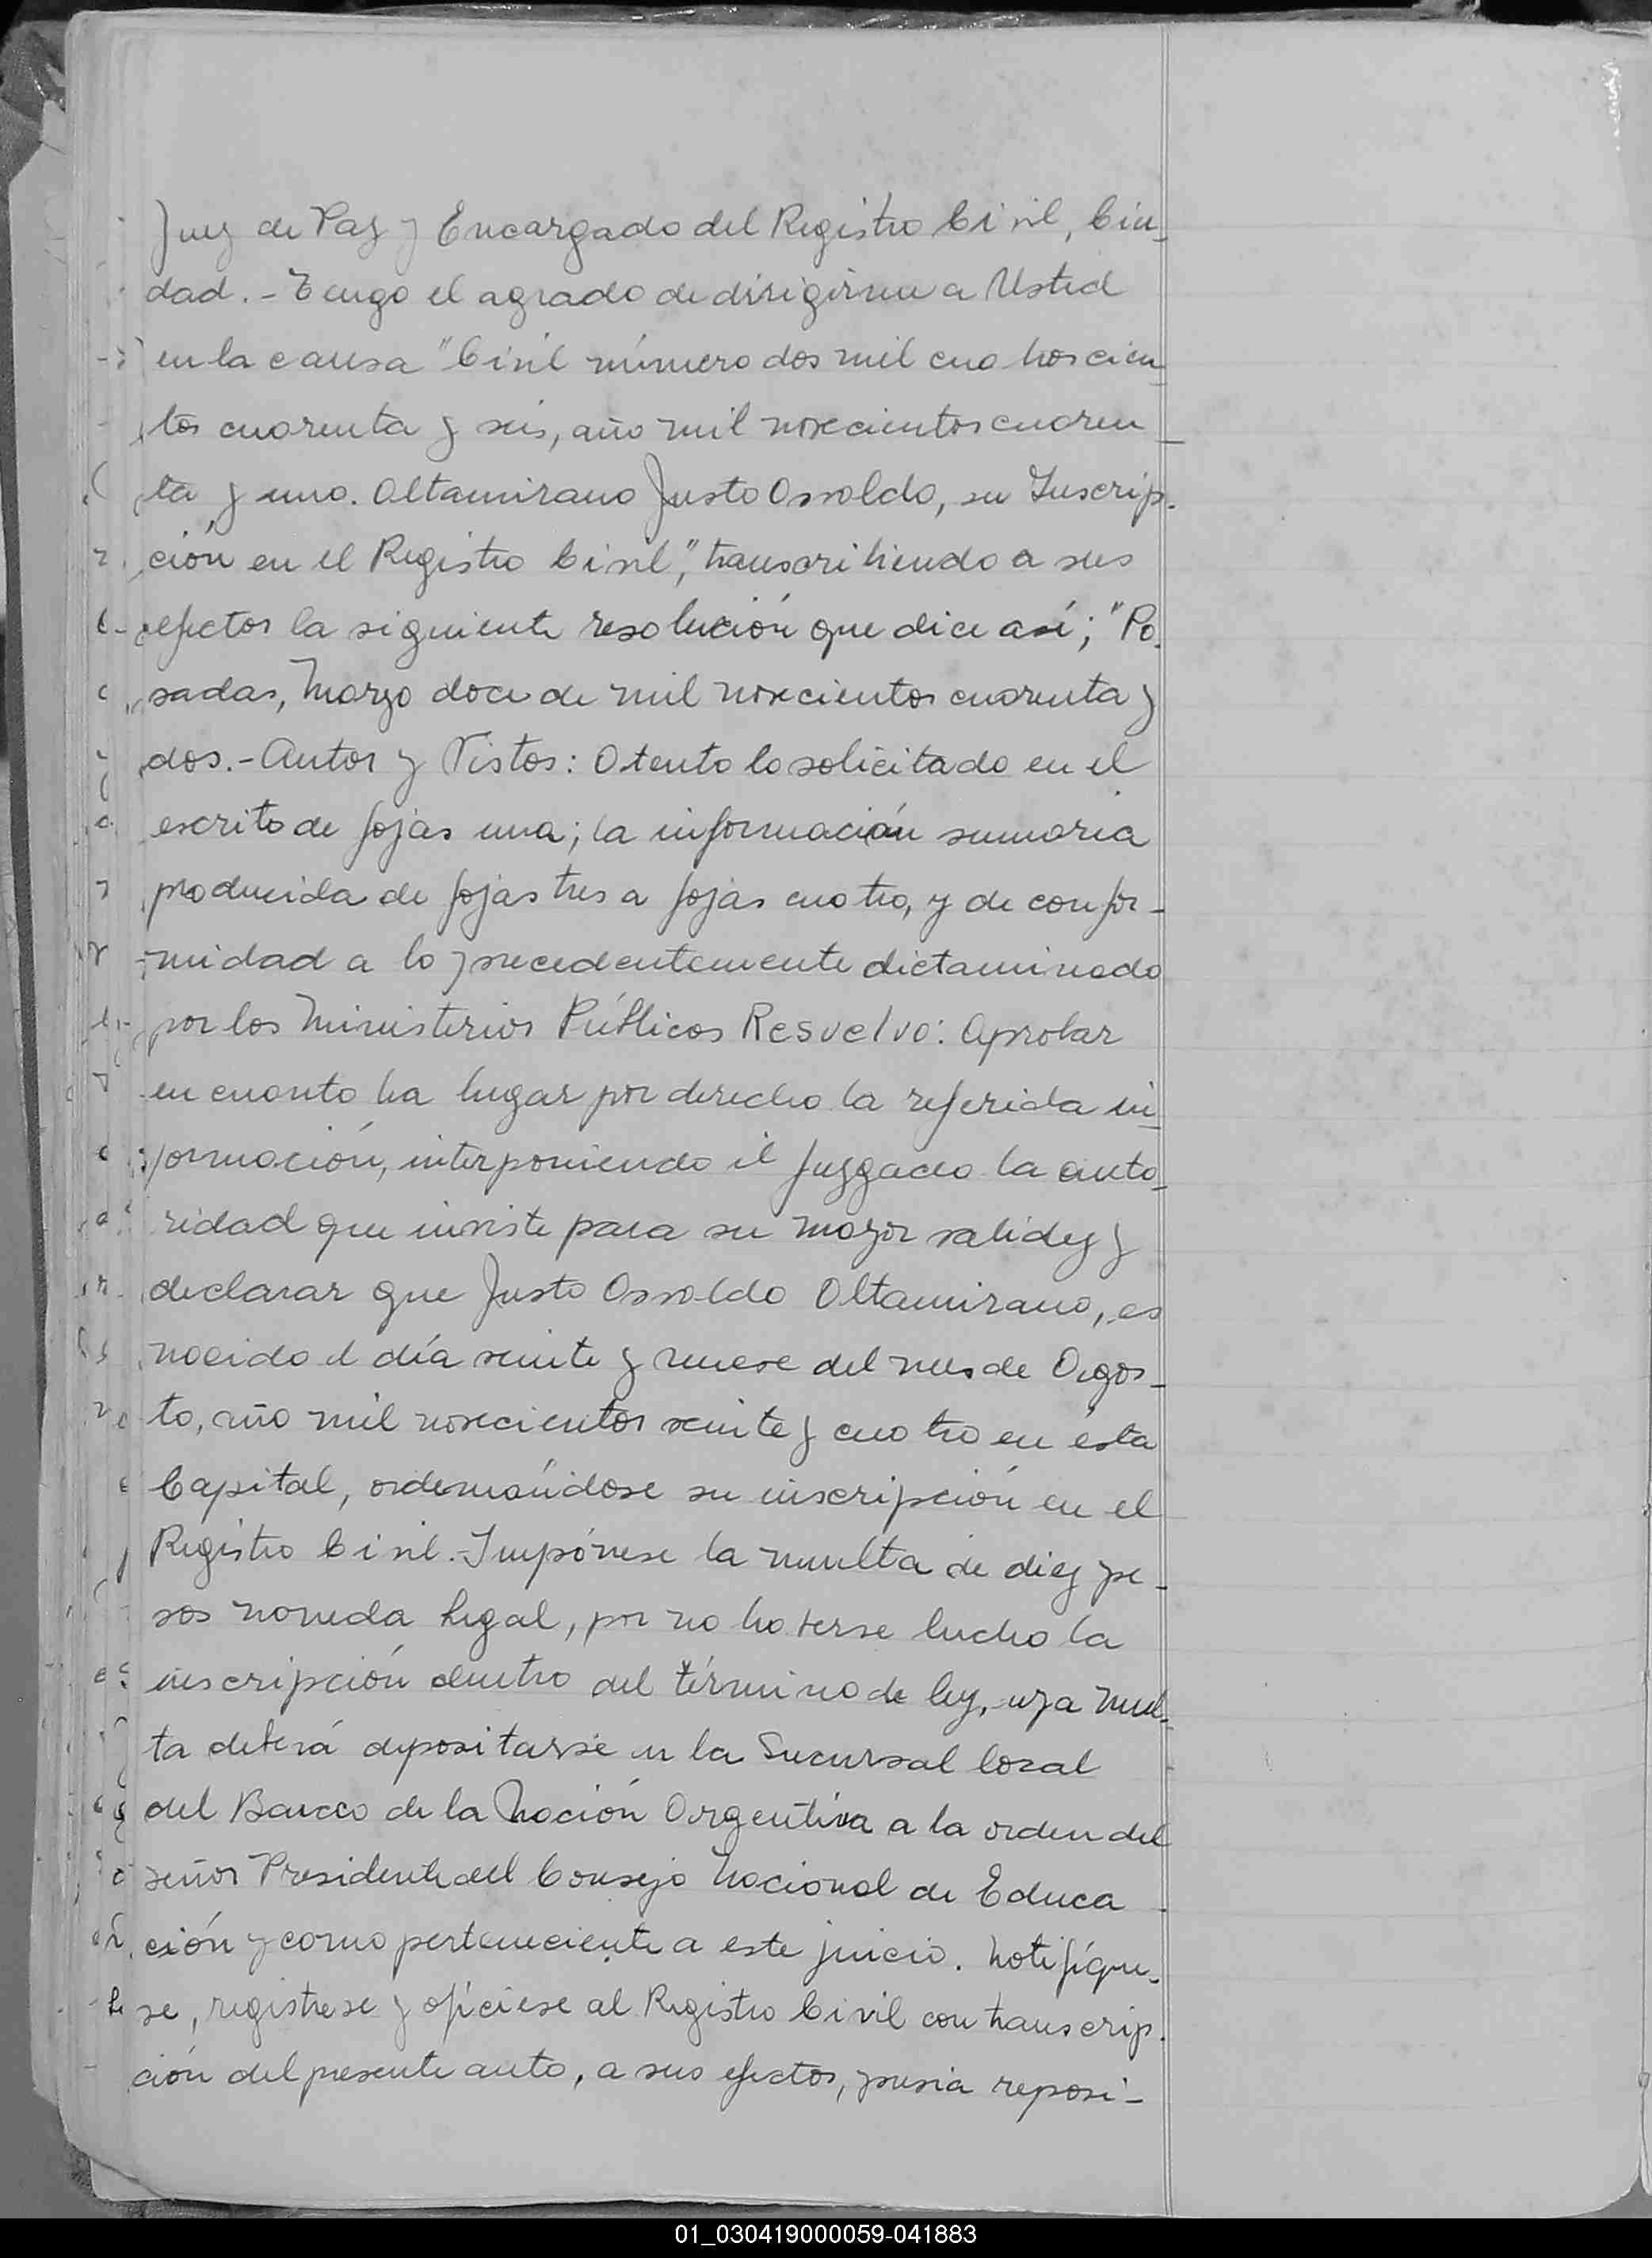 Juez de Paz y Encargado del Registro Civil, Ciu-
dad.- Tengo el agrado de dirigirme a Usted
en la causa "Civil número dos mil cuatroscien-
tos cuarenta y seis, año mil novecientos cuaren-
ta y uno. Altamirano Justo Osvaldo, su Inscrip-
ción en el Registro Civil", transcribiendo a sus
efectos la siguiente resolución que dice así; "Po-
sadas, Marzo doce de mil novecientos cuarenta y
dos.- Autos y Vistos: Atento lo solicitado en el
escrito de fojas una; la información sumaria
producida de fojas tres a fojas cuatro, y de confor-
midad a lo precedentemente dictaminado
por los Ministerios Públicos Resuelvo: Aprobar
en cuanto ha lugar por derecho la referida in-
formación, interponiendo el Juzgado la auto-
ridad que inviste para su mayor validez y
declarar que Justo Osvaldo Altamirano, es
nacido el día veinte y nueve del mes de Agos-
to, año mil novecientos veinte y cuatro en ésta
Capital, ordenándose su inscripción en el
Registro Civil.- Impónese la multa de diez pe-
sos moneda legal, por no haberse hecho la
inscripción dentro del término de ley, cuya mul-
ta deberá depositarse en la Sucursal local
del Banco de la Nación Argentina a la orden del
señor Presidente del Consejo Nacional de Educa-
ción y como perteneciente a este juicio. Notifíque-
se, regístrese y ofíciese al Registro Civil con transcrip-
ción del presente auto, a sus efectos, previa reposi-
01_030419000059-041883